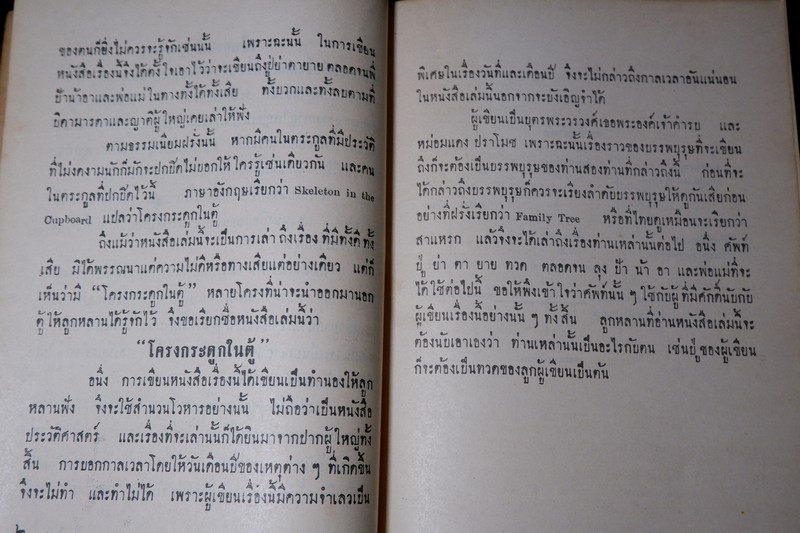 ของคนก็ยิ่งไม่ควรจะรู้จักเช่นนั้น เพราะฉะนั้น ในการเขียน
หนังสือเรื่องนี้จึงได้ตั้งใจเอาไว้ว่าจะเขียนถึงปู่ย่าตายาย ตลอดจนพี่
ป้าน้าอาและพ่อแม่ในทางทั้งได้ทั้งเสีย ทั้งบวกและทั้งลบตามที่
บิดามารดาและญาติผู้ใหญ่เคยเล่าให้ฟัง
ตามธรรมเนียมฝรั่งนั้น หากมีคนในตระกูลที่มีประวัติ
ที่ไม่งดงามนักก็มักจะปกปิดไม่บอกให้ใครรู้เช่นเดียวกัน และคน
ในตระกูลที่ปกปิดไว้นี้ ภาษาอังกฤษเรียกว่า Skeleton in the
Cupboard แปลว่าโครงกระดูกในตู้
ถึงแม้ว่าหนังสือเล่มนี้จะเป็นการเล่าถึงเรื่อง ที่มีทั้งดีทั้ง
เสีย มิได้พรรณนาแต่ความไม่ดีหรือทางเสียแต่อย่างเดียว แต่ก็
เห็นว่ามี “โครงกระดูกในตู้” หลายโครงที่น่าจะนำออกมานอก
ตู้ให้ลูกหลานได้รู้จักไว้ จึงขอเรียกชื่อหนังสือเล่มนี้ว่า
“โครงกระดูกในตู้”
อนึ่ง การเขียนหนังสือเรื่องนี้ได้เขียนเป็นทำนองให้ลูก
หลานฟัง จึงจะใช้สำนวนโวหารอย่างนั้น ไม่ถือว่าเป็นหนังสือ
ประวัติศาสตร์ และเรื่องที่จะเล่านั้นก็ได้ยินมาจากปากผู้ใหญ่ทั้ง
สิ้น การบอกกาลเวลาโดยให้วันเดือนปีของเหตุต่าง ๆ ที่เกิดขึ้น
จึงจะไม่ทำ และทำไม่ได้ เพราะผู้เขียนเรื่องนี้มีความจำเลวเป็น
๒
พิเศษในเรื่องวันที่และเดือนปี จึงจะไม่กล่าวถึงกาลเวลาอันแน่นอน
ในหนังสือเล่มนี้นอกจากจะบังเอิญจำได้
ผู้เขียนเป็นบุตรพระวรวงศ์เธอพระองค์เจ้าคำรบ และ
หม่อมแดง ปราโมช เพราะฉะนั้นเรื่องราวของบรรพบุรุษที่จะเขียน
ถึงก็จะต้องเป็นบรรพบุรุษของท่านสองท่านที่กล่าวถึงนี้ ก่อนที่จะ
ได้กล่าวถึงบรรพบุรุษก็ควรจะเรียงลำดับบรรพบุรุษให้ดูกันเสียก่อน
อย่างที่ฝรั่งเรียกว่า Family Tree หรือที่ไทยดูเหมือนจะเรียกว่า
สาแหรก แล้วจึงจะได้เล่าถึงเรื่องท่านเหล่านั้นต่อไป อนึ่ง ศัพท์
ปู่ ย่า ตา ยาย ทวด ตลอดจน ลุง ป้า น้า อา และพ่อแม่ที่จะ
ได้ใช้ต่อไปนี้ ขอให้พึงเข้าใจว่าศัพท์นั้น ๆ ใช้กับผู้ที่มีศักดิ์นับกับ
ผู้เขียนเรื่องนี้อย่างนั้น ๆ ทั้งสิ้น ลูกหลานที่อ่านหนังสือเล่มนี้จะ
ต้องนับเอาเองว่า ท่านเหล่านั้นเป็นอะไรกับตน เช่นปู่ของผู้เขียน
ก็จะต้องเป็นทวดของลูกผู้เขียนเป็นต้น